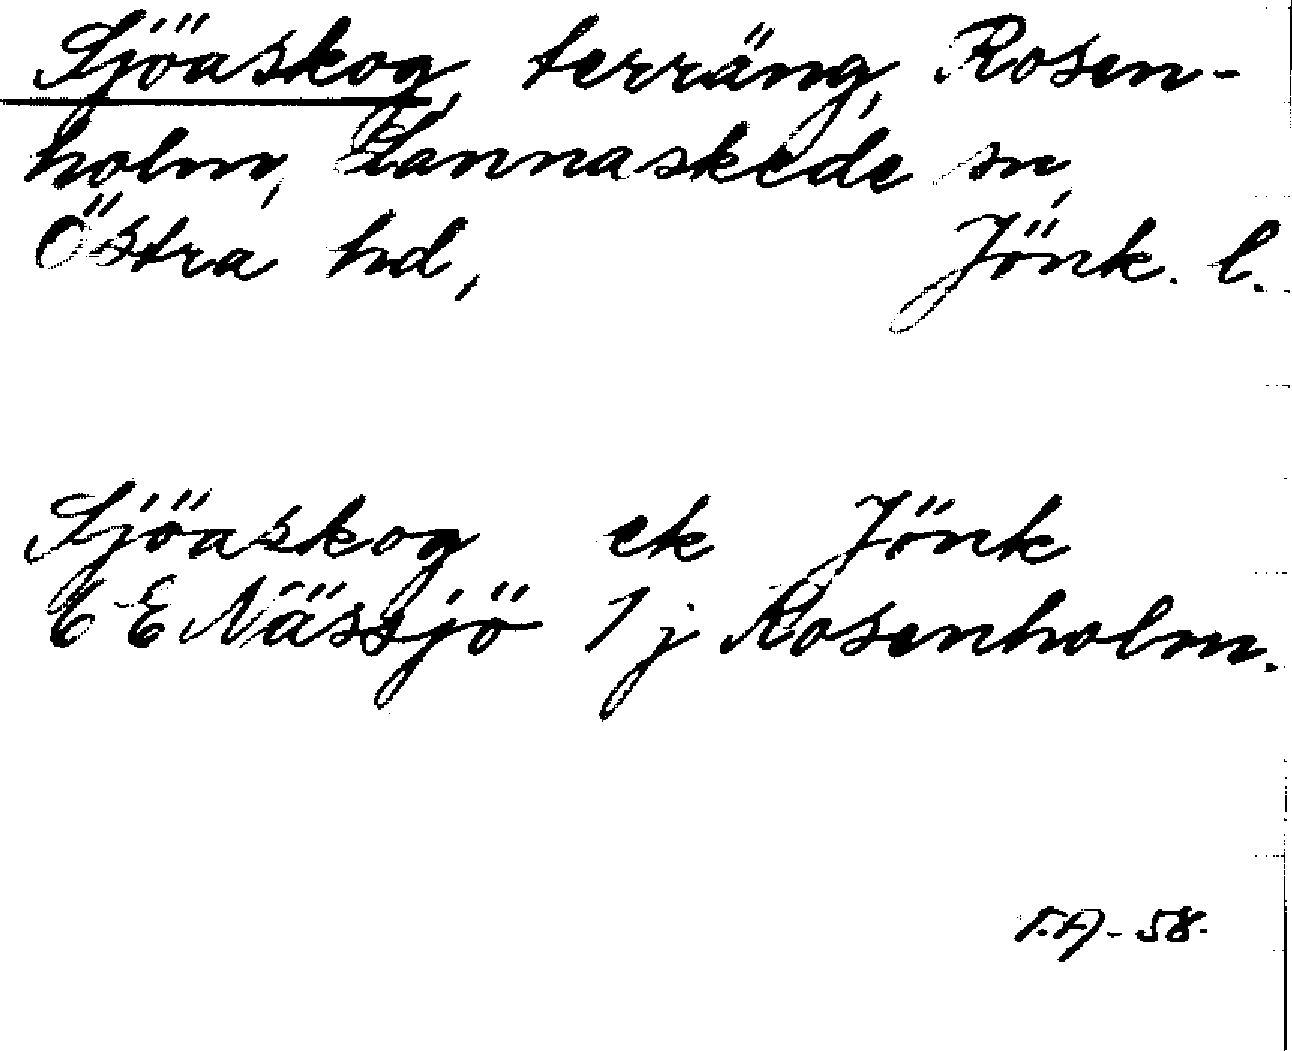 Sjöaskog, terräng, Rosen-
holm, Lannaskede sn,
Östra hd, Jönk. l.
Sjöaskog ek Jönk
6 E Nässjö 1 j Rosenholm.
-58.